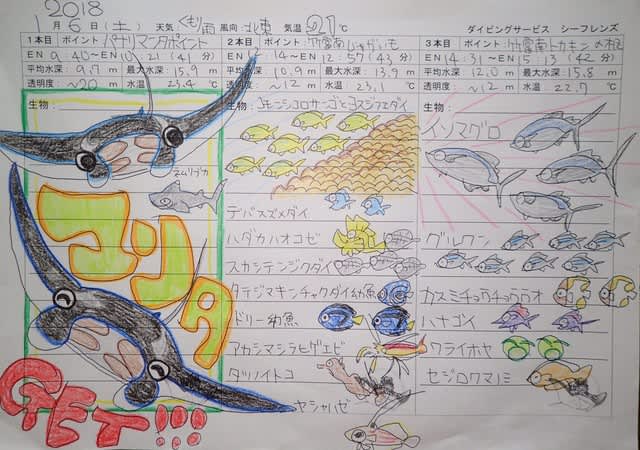 2018
1月 6日(土) 天気 くもり雨 風向:北東 気温 21℃ ダイビングサービス シーフレンズ
1本目 ポイント パナリマンタポイント
EN 9:40～EX 10:21 (41分)
平均水深:9.7m 最大水深:15.9m
透明度:～20m 水温:23.4℃
生物:
ネムリブカ
マンタ
GET!!!
2本目 ポイント:竹富南じゃがいも
14～ 12:57 (43分)
平均水深:10.9m 最大水深:13.9m
透明度:～12m 水温:23.1℃
生物:ヨスジフエダイ
デバスズメダイ
ハダカハオコゼ
スカシテンジクダイ
タテジマキンチャクダイ幼魚
ドリー幼魚
アカシマシラヒゲエビ
タツノイトコ
ヤシャハゼ
3本目 ポイント:竹富南トカキンの根
EN 14:31～EX 15:13 (42分)
平均水深:12.0m 最大水深:15.8m
透明度:～12m 水温:22.7℃
生物:
イソマグロ
グルクン
カスミチョウチョウウオ
ハナゴイ
ワライボヤ
セジロクマノミ